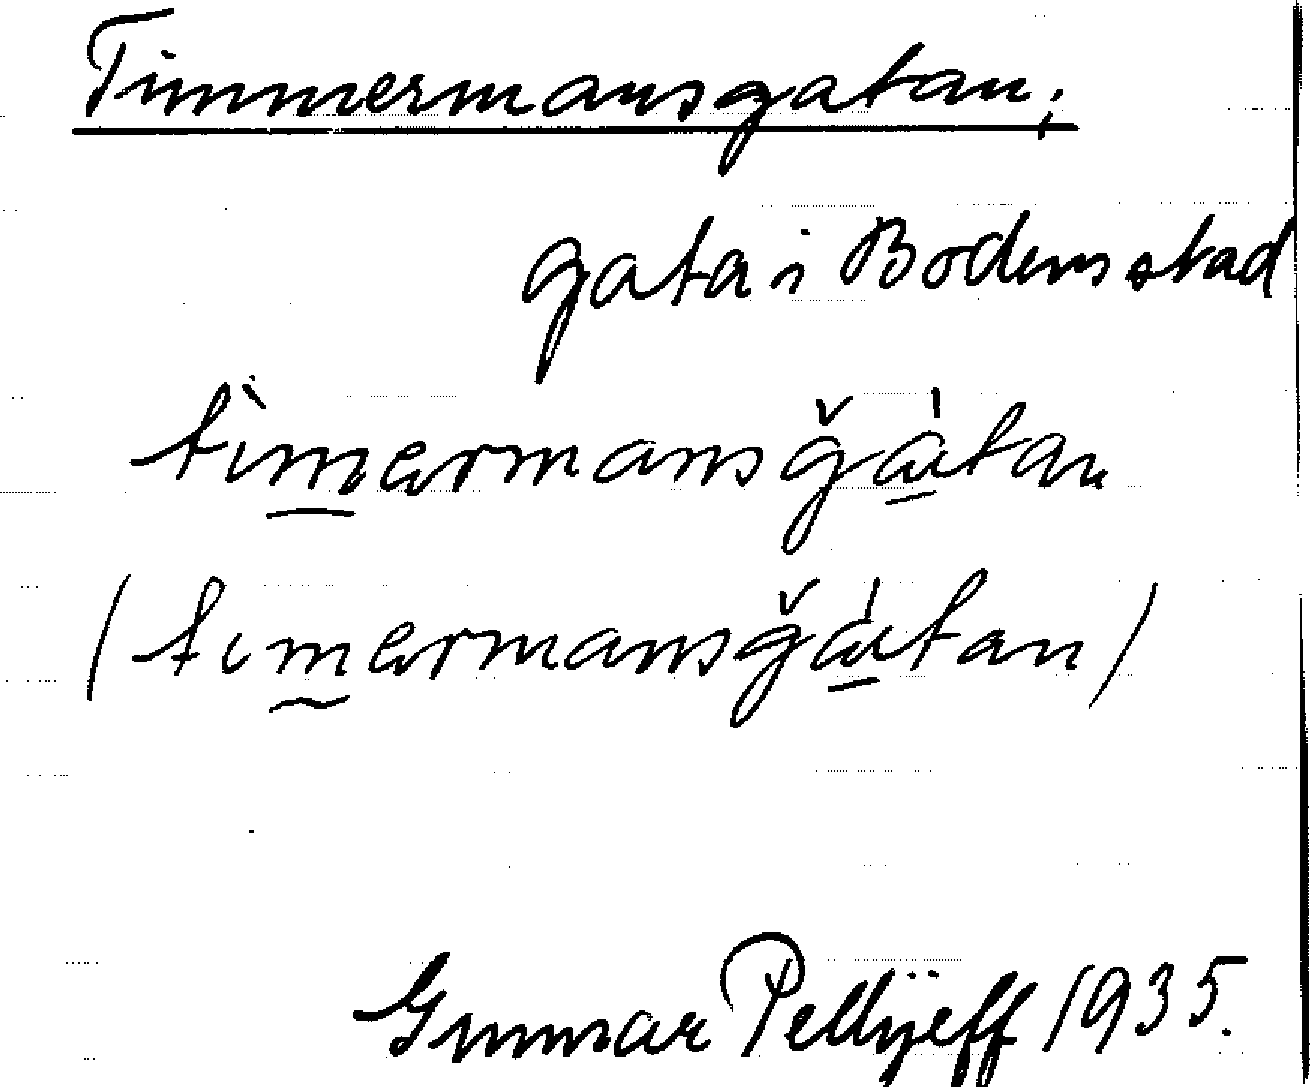 Timmermansgatan;
gata i Bodens stad
tìmermansğàtan
(timermansğàtan)
Gunnar Pellijeff 1935.